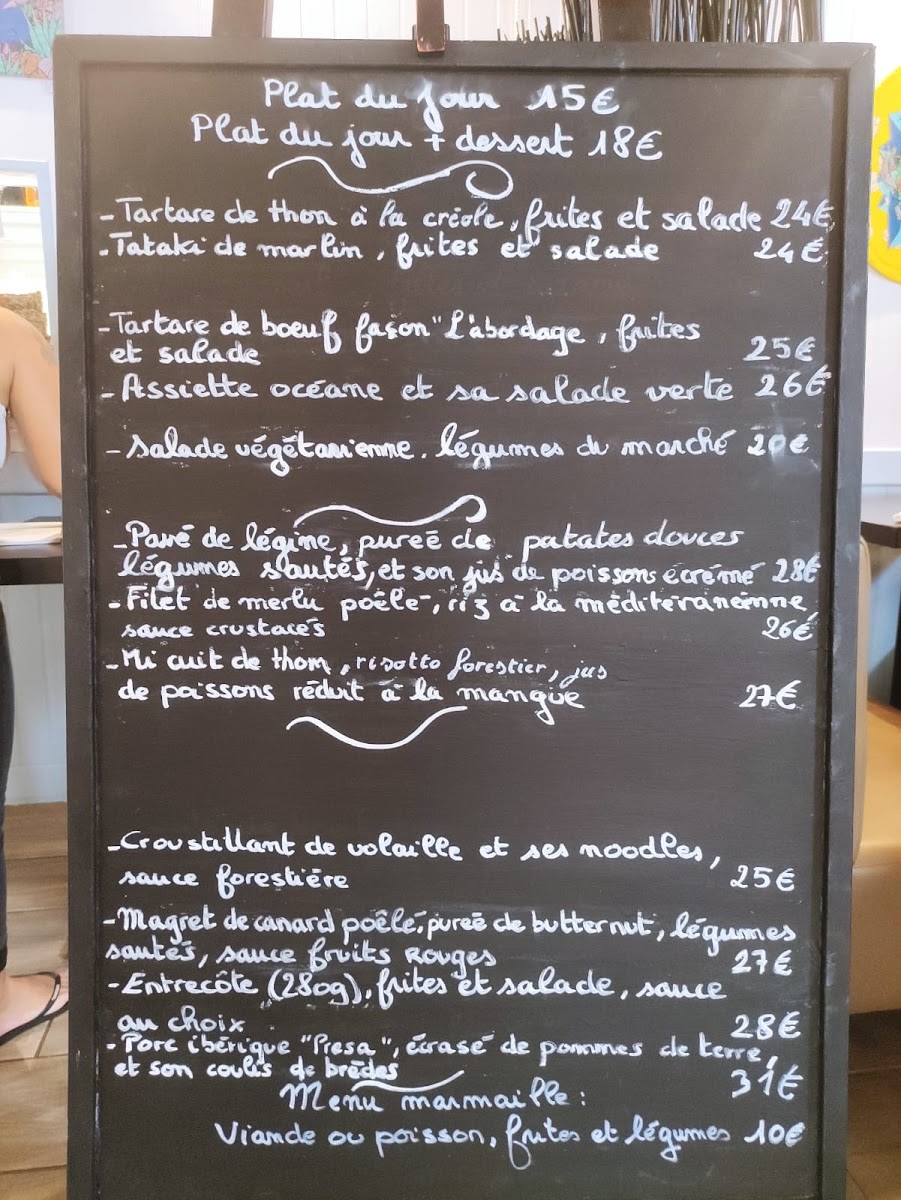 Plat du jour 15€
Plat du jour + dessert 18€
- Tartare de thon à la créole, frites et salade 24€
- Tataki de marlin, frites et salade 24€
- Tartare de boeuf façon "L'abordage, frites
et salade 25€
- Assiette océane et sa salade verte 26€
- Salade végétarienne. légumes du marché 20€
- Pavé de légine, pureé de patates douces
légumes sautés, et son jus de poissons écrémé 28€
- Filet de merlu poêlé, riz à la méditéranéenne,
sauce crustacés 26€
- Mi cuit de thon, risotto forestier, jus
de poissons réduit à la mangue 27€
- Croustillant de volaille et ses noodles,
sauce forestiére 25€
- Magret de canard poêlé, pureé de butternut, légumes
sautés, sauce fruits Rouges 27€
- Entrecôte (280g), frites et salade, sauce
au choix 28€
- Porc ibérique "Presa", écrasé de pommes de terre,
et son coulis de brèdes 31€
Menu marmaille:
Viande ou poisson, frites et légumes 10€